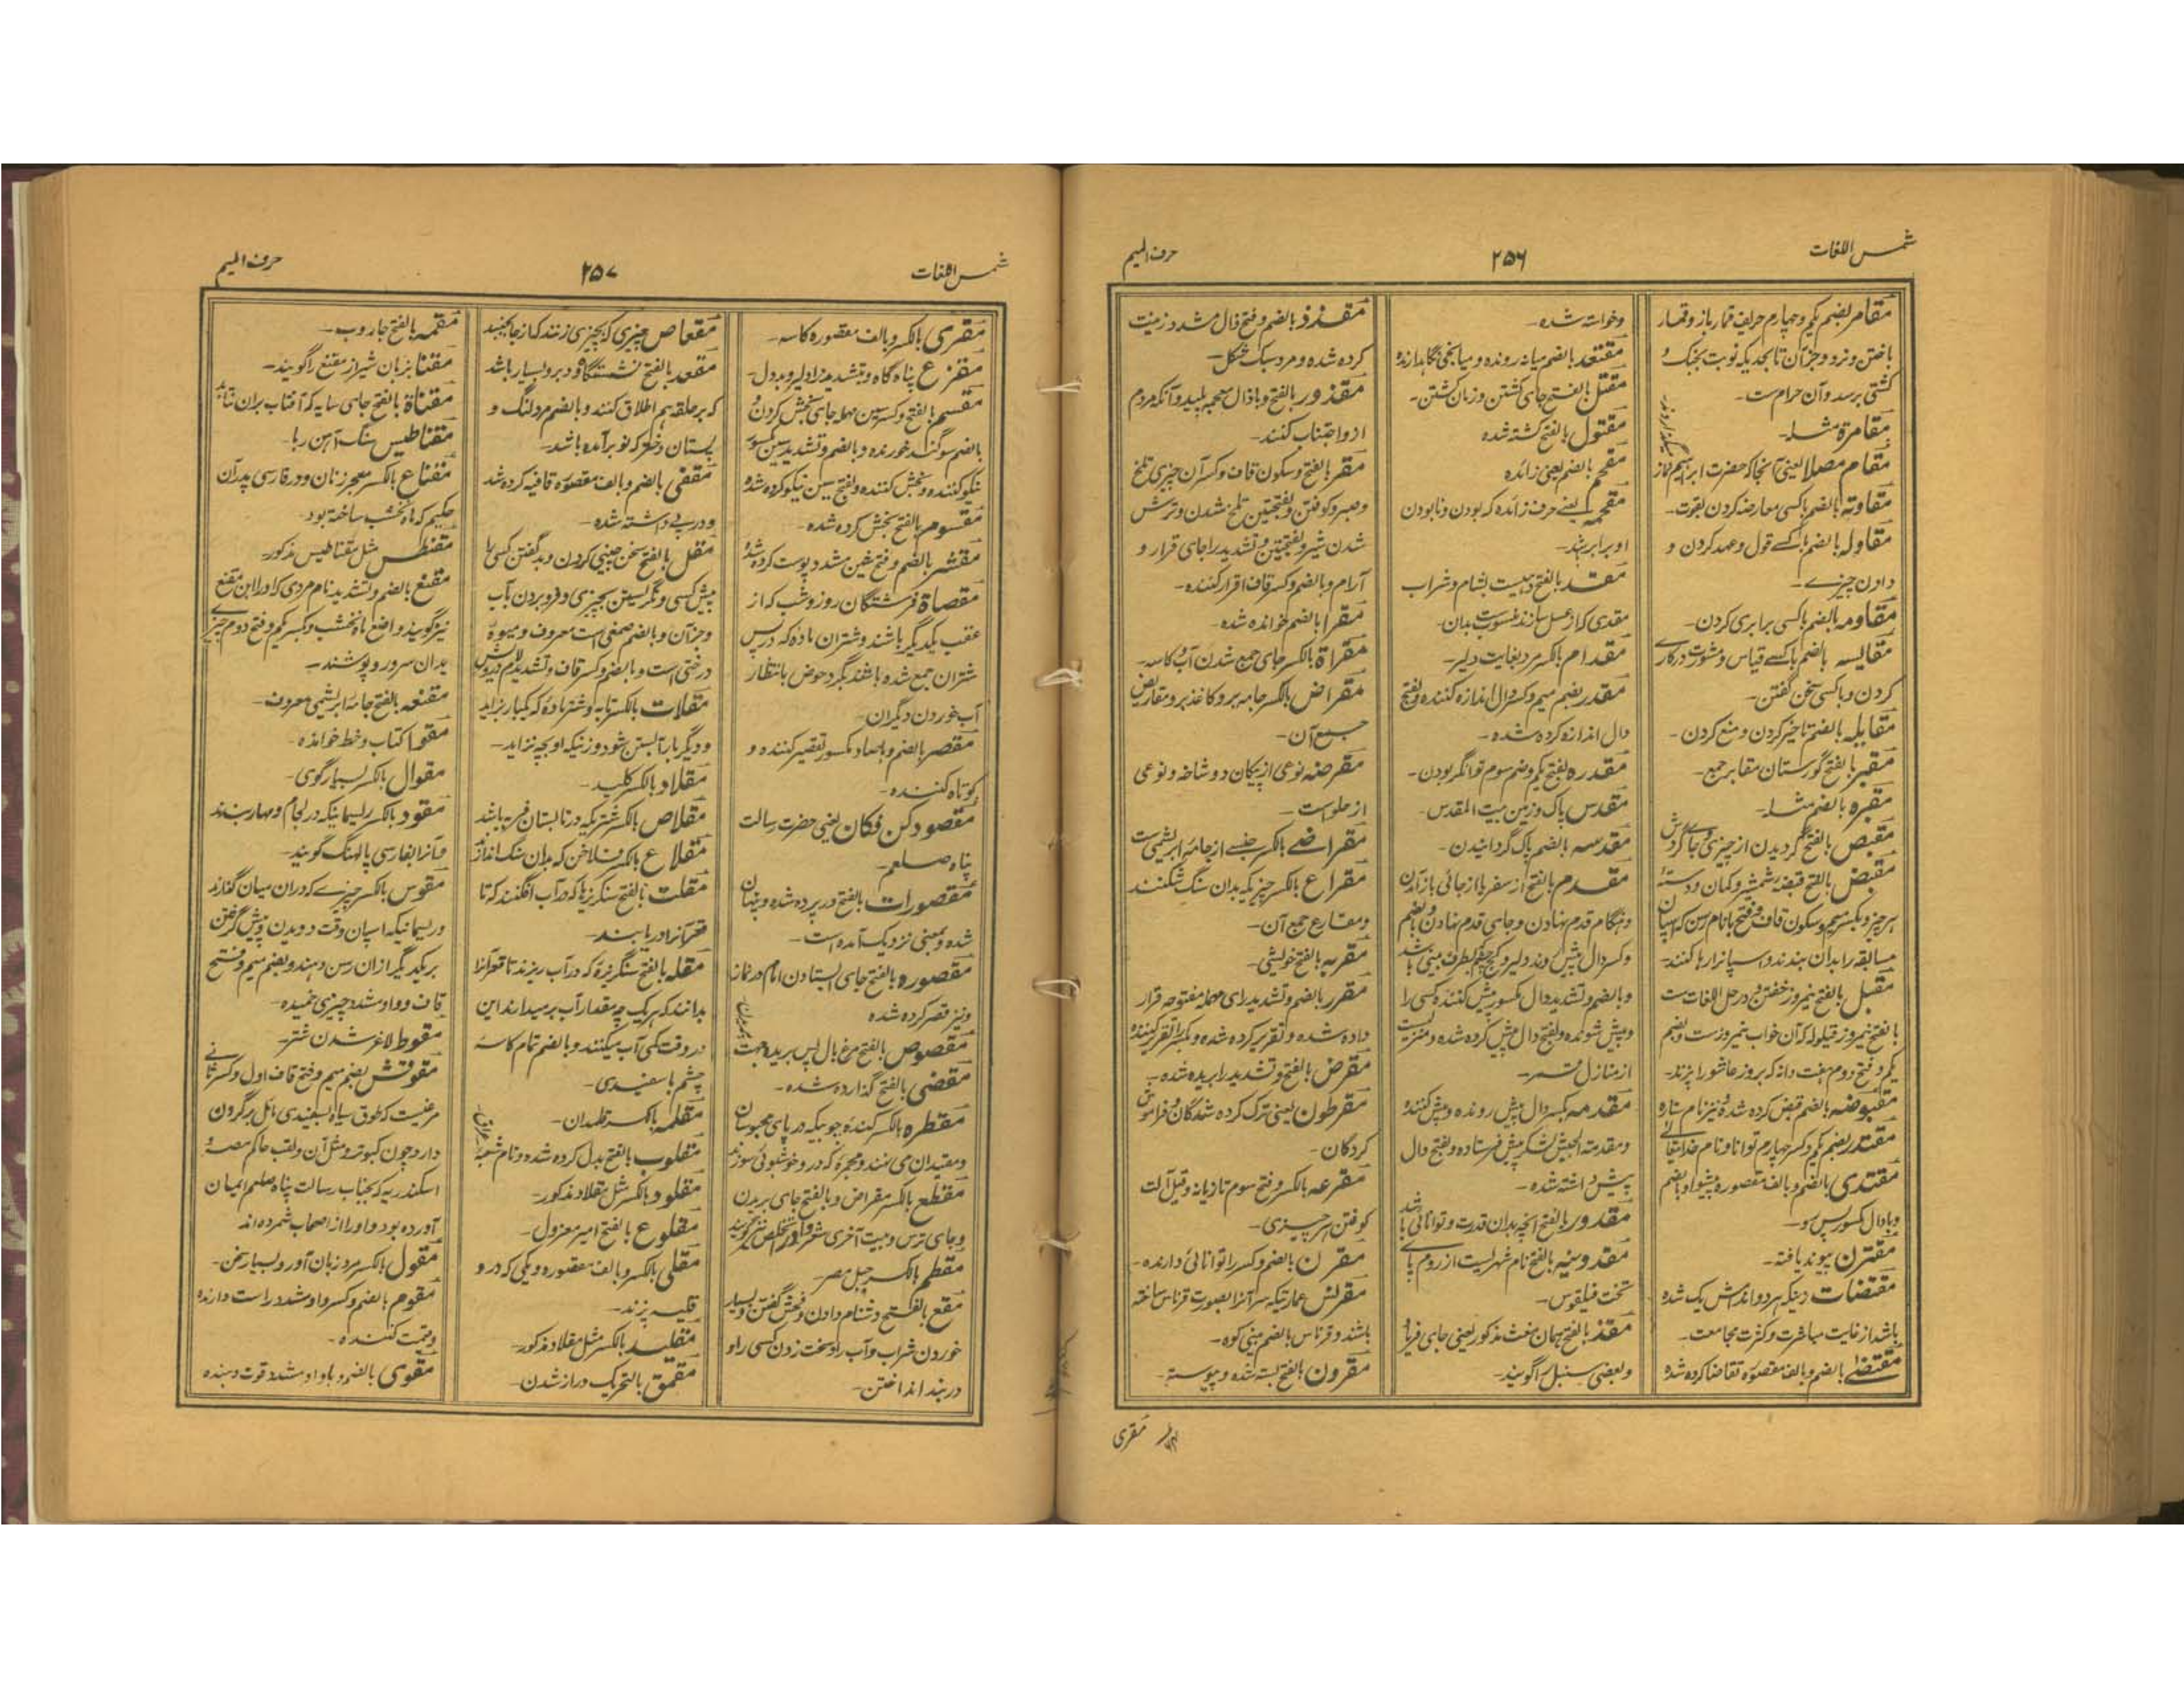 شمس اللغات
۲۵۶
حرف المیم
مقامر بضم یکم و چهارم حریف قمار باز و قمار
باختن و نرد و جز آن تا بحدیکه نوبت بجنگ و
کشتی برسد و آن حرام ست۔
مقامرة مثله۔
مقام مصلا یعنی آنجا که حضرت ابراهیم نماز
میگذاردند۔
مقاوته بالضم با کسی معارضه کردن بقوت۔
مقاوله بالضم با کسے قول و عهد کردن و
دادن چیزے۔
مقاومه بالضم با کسی برابری کردن۔
مقایسه بالضم با کسے قیاس و مشورت در کاری
کردن و با کسی سخن گفتن۔
مقابله بالضم تاخیر کردن و منع کردن۔
مقبر بالفتح گورستان مقابر جمع۔
مقبره بالضم مثله۔
مقبص بالفتح گردیدن از چیزی و جای گردش
مقبض بالفتح قبضه شمشیر و کمان و دسته
هر چیز و بکسر میم و سکون قاف و فتح با نام رسن که اسپان
مسابقه را بدان بندند و اسپانرا رها کنند۔
مقبل بالفتح نیمروز خفتن و در حل اللغات ست
بالفتح نیمروز قیلوله که آن خواب نیمروز ست و بضم
یکم و فتح دوم هفت دانه که بروز عاشورا پزند۔
مقبوضه بالضم قبض کرده شده و نیز نام ستاره
مقتدر بضم یکم و کسر چهارم توانا و نام خدایتعالی
مقتدی بالضم و بالف مقصوره پیشوا و بالضم
و با دال مکسور پس رو۔
مقترن پیوند یافته۔
مقتضات دینکه هر دو اندامش یک شده
باشد از غایت مباشرت و کثرت مجامعت۔
مقتضے بالضم و بالف مقصوره تقاضا کرده شده
و خواسته شده۔
مقتعد بالضم میانه رونده و میانجی نگاهدارنده
مقتل بالفتح جای کشتن و زمان کشتن۔
مقتول بالفتح کشته شده
مقحم بالضم یعنی زائده
مقحمه یعنے حرف زائده که بودن و نابودن
او برابر بود۔
مقد بالفتح دهیست بشام و شراب
مقدی که از عسل سازند منسوب بدان۔
مقدام بالکسر مرد بغایت دلیر۔
مقدر بضم میم و کسر دال اندازه کننده و بفتح
دال اندازه کرده شده۔
مقدره بفتح یکم و ضم سوم توانگر بودن۔
مقدس پاک و زمین بیت المقدس۔
مقدسه بالضم پاک گردانیدن۔
مقدم بالفتح از سفر با از جائی باز آمدن
و هنگام قدم نهادن و جای قدم نهادن و بالضم
و کسر دال پیش رونده و دلیر و کنج چشم بطرف بینی باشد
و بالضم و تشدید دال مکسور پیش کننده کسی را
و پیش شونده و بفتح دال پیش کرده شده و منزلیست
از منازل قمر۔
مقدمه بکسر دال پیش رونده و پیش کننده
و مقدمة الجیش لشکر پیش فرستاده و بفتح دال
پیش داشته شده۔
مقدور بالفتح آنچه بدان قدرت و توانائی باشد
مقدونیه بالفتح نام شهریست از روم پاے
تخت فیلقوس۔
مقذ بالفتح همان مغث مذکور یعنی جای فریاد
و بعضی سنبل را گویند۔
مقذذ بالضم و فتح ذال مشدد زینت
کرده شده و مرد سبک شکل۔
مقذور بالفتح و با ذال معجمه پلید و آنکه مردم
ازو اجتناب کنند۔
مقر بالفتح و سکون قاف و کسر آن چیزی تلخ
و صبر و کوفتن و بفتحتین تلخ شدن و ترش
شدن شیر و بفتحتین و تشدید را جای قرار و
آرام و بالضم و کسر قاف اقرار کننده۔
مقرا بالضم خوانده شده۔
مقراة بالکسر جای جمع شدن آب و کاسه۔
مقراض بالکسر جامه بر و کاغذ بر و مقاریض
جمع آن۔
مقرضه نوعی از پیکان دو شاخه و نوعی
از حلوا ست۔
مقراضے بالکسر جنسے از جامه ابریشمی ست
مقراع بالکسر چیزیکه بدان سنگ شکنند
و مقارع جمع آن۔
مقربه بالفتح خویشی۔
مقرر بالضم و تشدید رای مهمله مفتوحه قرار
داده شده و تقریر کرده شده و بکسر را تقریر کننده
مقرض بالفتح و تشدید را بریده شده۔
مقرطون یعنی ترک کرده شدگان و فراموش
کردگان۔
مقرعه بالکسر و فتح سوم تازیانه و قیل آلت
کوفتن هر چیزی۔
مقرن بالضم و کسر را توانائی دارنده۔
مقرنس عمارتیکه سر آنرا بصورت قرناس ساخته
باشند و قرناس بالضم بینی کوه۔
مقرون بالفتح بسته شده و پیوسته۔
مقری
شمس اللغات
۲۵۷
حرف المیم
مقری بالکسر و بالف مقصوره کاسه۔
مقزع پناه گاه و بتشدید زا دلیر و بددل۔
مقسم بالفتح و کسر سین مهمله جای بخش کردن و
بالضم سوگند خورنده و بالضم و تشدید سین مکسور
نیکو کننده و بخش کننده و بفتح سین نیکو کرده شده
مقسوم بالفتح بخش کرده شده۔
مقشر بالضم و فتح شین مشدد پوست کرده شده
مقصاة فرشتگان روز و شب که از
عقب یکدیگر باشند و شتران ماده که در پس
شتران جمع شده باشند بگرد حوض بانتظار
آب خوردن دیگران۔
مقصر بالضم و با صاد مکسور تقصیر کننده و
کوتاه کننده۔
مقصود کن فکان یعنی حضرت رسالت
پناه صلعم۔
مقصورات بالفتح در پرده شده و پنهان
شده و بمعنی نزدیک آمده است۔
مقصوره بالفتح جای ایستادن امام در نماز
و نیز قصر کرده شده
مقصوص بالفتح مرغ بال پس بریده جهت
پریدن۔
مقضی بالفتح گذارده شده۔
مقطره بالکسر کنده چوبیکه در پای محبوسان
و مقیدان می نهند و مجمره که درو خوشبوئی سوزند
مقطع بالکسر مقراض و بالفتح جای بریدن
و جای ترس و بیت آخری شعر و آنرا تخلص نیز گویند
مقطم بالکسر جبل مصر۔
مقع بالفتح دشنام دادن و فحش گفتن و بسیار
خوردن شراب و آب را و سخت زدن کسی را و
در بند انداختن۔
مقعاص چیزی که بچیزی زنند که از جا بجنبد
مقعد بالفتح نشستگاه و دبر و بسیار باشد
که بر حلقه هم اطلاق کنند و بالضم مرد لنگ و
پستان دختر که نو برآمده باشد۔
مقفی بالضم و بالف مقصوره قافیه کرده شد
و در پی داشته شده۔
مقل بالفتح سخن چینی کردن و بد گفتن کسی را
پیش کسی و نگریستن بچیزی و فرو بردن بآب
و جز آن و بالضم صمغی است معروف و میوه
درختی است و بالضم و کسر قاف و تشدید لام درویش
مقلات بالکسر تابه و شتر ماده که یکبار بزاید
و دیگر بار آبستن نشود و زنیکه او بچه نزاید۔
مقلاد بالکسر کلید۔
مقلاص بالکسر شتریکه در تابستان فربه باشد
مقلاع بالکسر فلاخن که بدان سنگ اندازند
مقلت بالفتح سنگریزها که در آب افگنند که تا
قعر آنرا دریابند۔
مقله بالفتح سنگریزه که در آب ریزند تا قعر آنرا
بدانند که هر یک چه مقدار آب بر میدارند این
در وقت کمی آب میکنند و بالضم تمام کاسه
چشم با سفیدی۔
مقلمه بالکسر قلمدان۔
مقلوب بالفتح بدل کرده شده و نام شعبه
عراق۔
مقلود بالکسر مثل مقلاد مذکور۔
مقلوع بالفتح امیر معزول۔
مقلی بالکسر و بالف مقصوره دیگی که درو
قلیه پزند۔
مقلید بالکسر مثل مقلاد مذکور۔
مقمق بالتحریک دراز شدن۔
مقمه بالفتح جاروب۔
مقنا بزبان شیراز مقنع را گویند۔
مقناة بالفتح جای سایه که آفتاب بران نتابد
مقناطیس سنگ آهن ربا۔
مقناع بالکسر معجر زنان و در فارسی پدر آن
حکیم که ماه نخشب ساخته بود۔
مقنطس مثل مقناطیس مذکور۔
مقنع بالضم و تشدید نام مردی که او را ابن مقنع
نیز گویند واضع ماه نخشب و بکسر یکم و فتح دوم چیزے
بدان سر و رو پوشند۔
مقنعه بالفتح جامه ابریشمی معروف۔
مقوا کتاب و خط خوانده۔
مقوال بالکسر بسیار گوی۔
مقود بالکسر ریسمانیکه در لجام و مهار بندند
و آنرا بفارسی پالهنگ گویند۔
مقوس بالکسر چیزے که دران میان گذارند
و ریسمانیکه اسپان وقت دویدن و پیش گرفتن
بر یکدیگر ازان رسن دهند و بضم میم و فتح
قاف و واو مشدد چیزی خمیده۔
مقوط لاغر شدن شتر۔
مقوقش بضم میم و فتح قاف اول و کسر ثانی
مرغیست که طوق سیاه بسفیدی مائل بر گردن
دارد چون کبوتر و مثل آن و لقب حاکم مصر و
اسکندریه که بجناب رسالت پناه صلعم ایمان
آورده بود و او را از اصحاب شمرده اند
مقول بالکسر مرد زبان آور و بسیار سخن۔
مقوم بالضم و کسر واو مشدد راست دارنده
و قیمت کننده۔
مقوی بالضم و با واو مشدد قوت دهنده